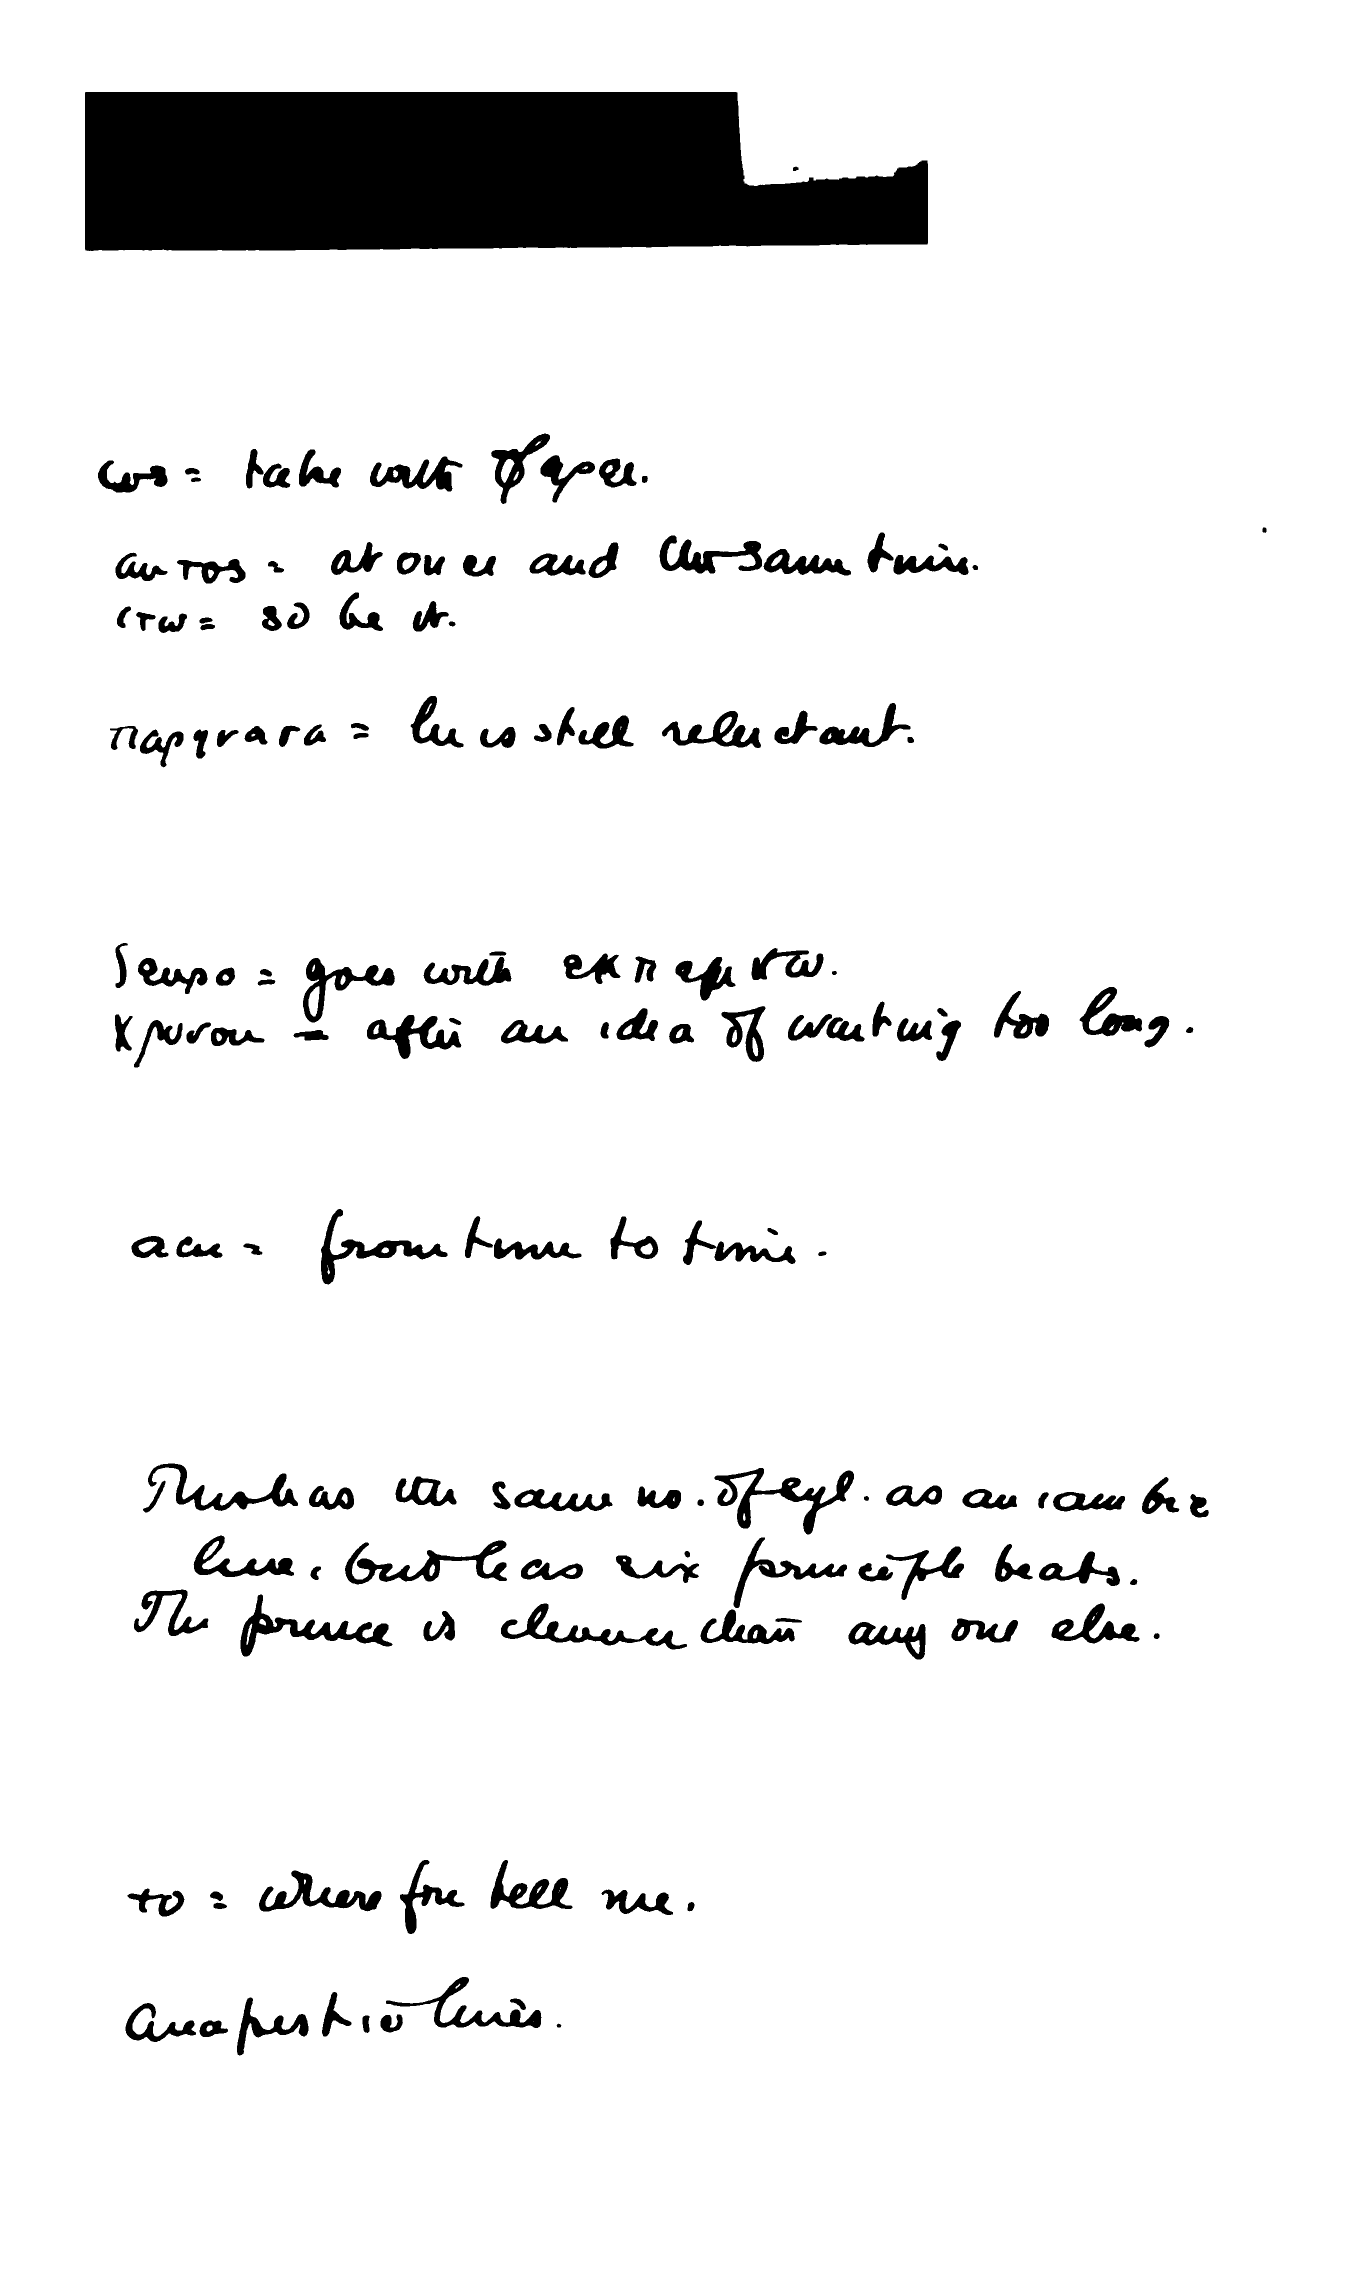 ως = take with φερει.
αυτος = at once and the same time.
ιτω = so be it.
παρηγαγα = he is still reluctant.
δευρο = goes with εκπερκτω.
χρονου = after an idea of waiting too long.
αει = from time to time.
This has the same no. of syl. as an iambic
line, but has six principle beats.
The prince is cleverer than any one else.
το = wherefore tell me.
Anapestic lines.